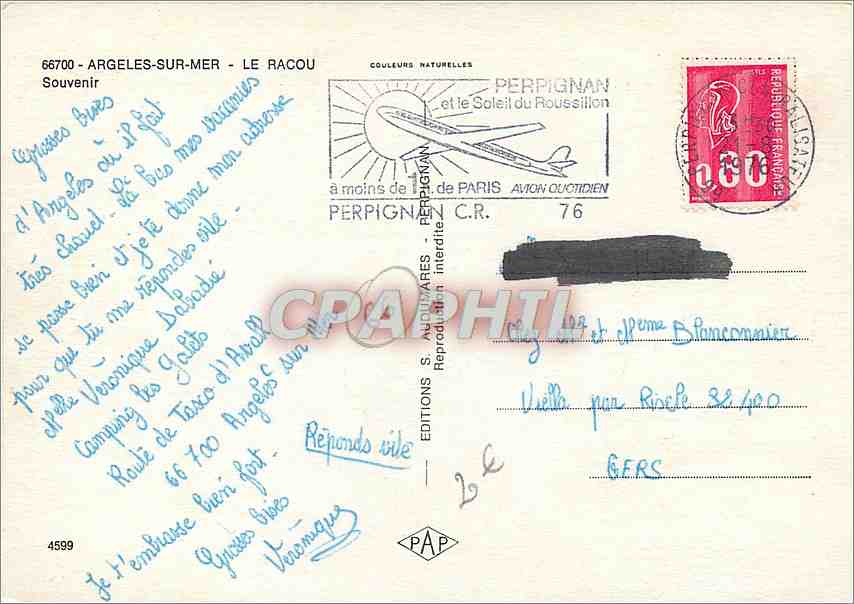 66700 - ARGELES-SUR-MER - LE RACOU
Souvenir
COULEURS NATURELLES
Grosses bises
d'Argeles où il fait
très chaud. Là bas mes vacances
se passe bien et je te donne mon adresse
pour que tu me répondes vite.
Melle Véronique
Camping les Galets
Route de Taxo d'Avall
66 700 Argeles sur Mer
Réponds vite
Je t'embrasse bien fort.
Grosses bises
Véronique
4599
EDITIONS S. AUDUMARES - PERPIGNAN
Reproduction interdite
PERPIGNAN
et le Soleil du Roussillon
à moins de 1 h. de PARIS AVION QUOTIDIEN
PERPIGNAN C.R. 76
REPUBLIQUE FRANCAISE
1,00
1976
CPARPHIL
Chez Mr et Mme Blanconnier
Viella par Riscle 32400
GERS
2€
PAP